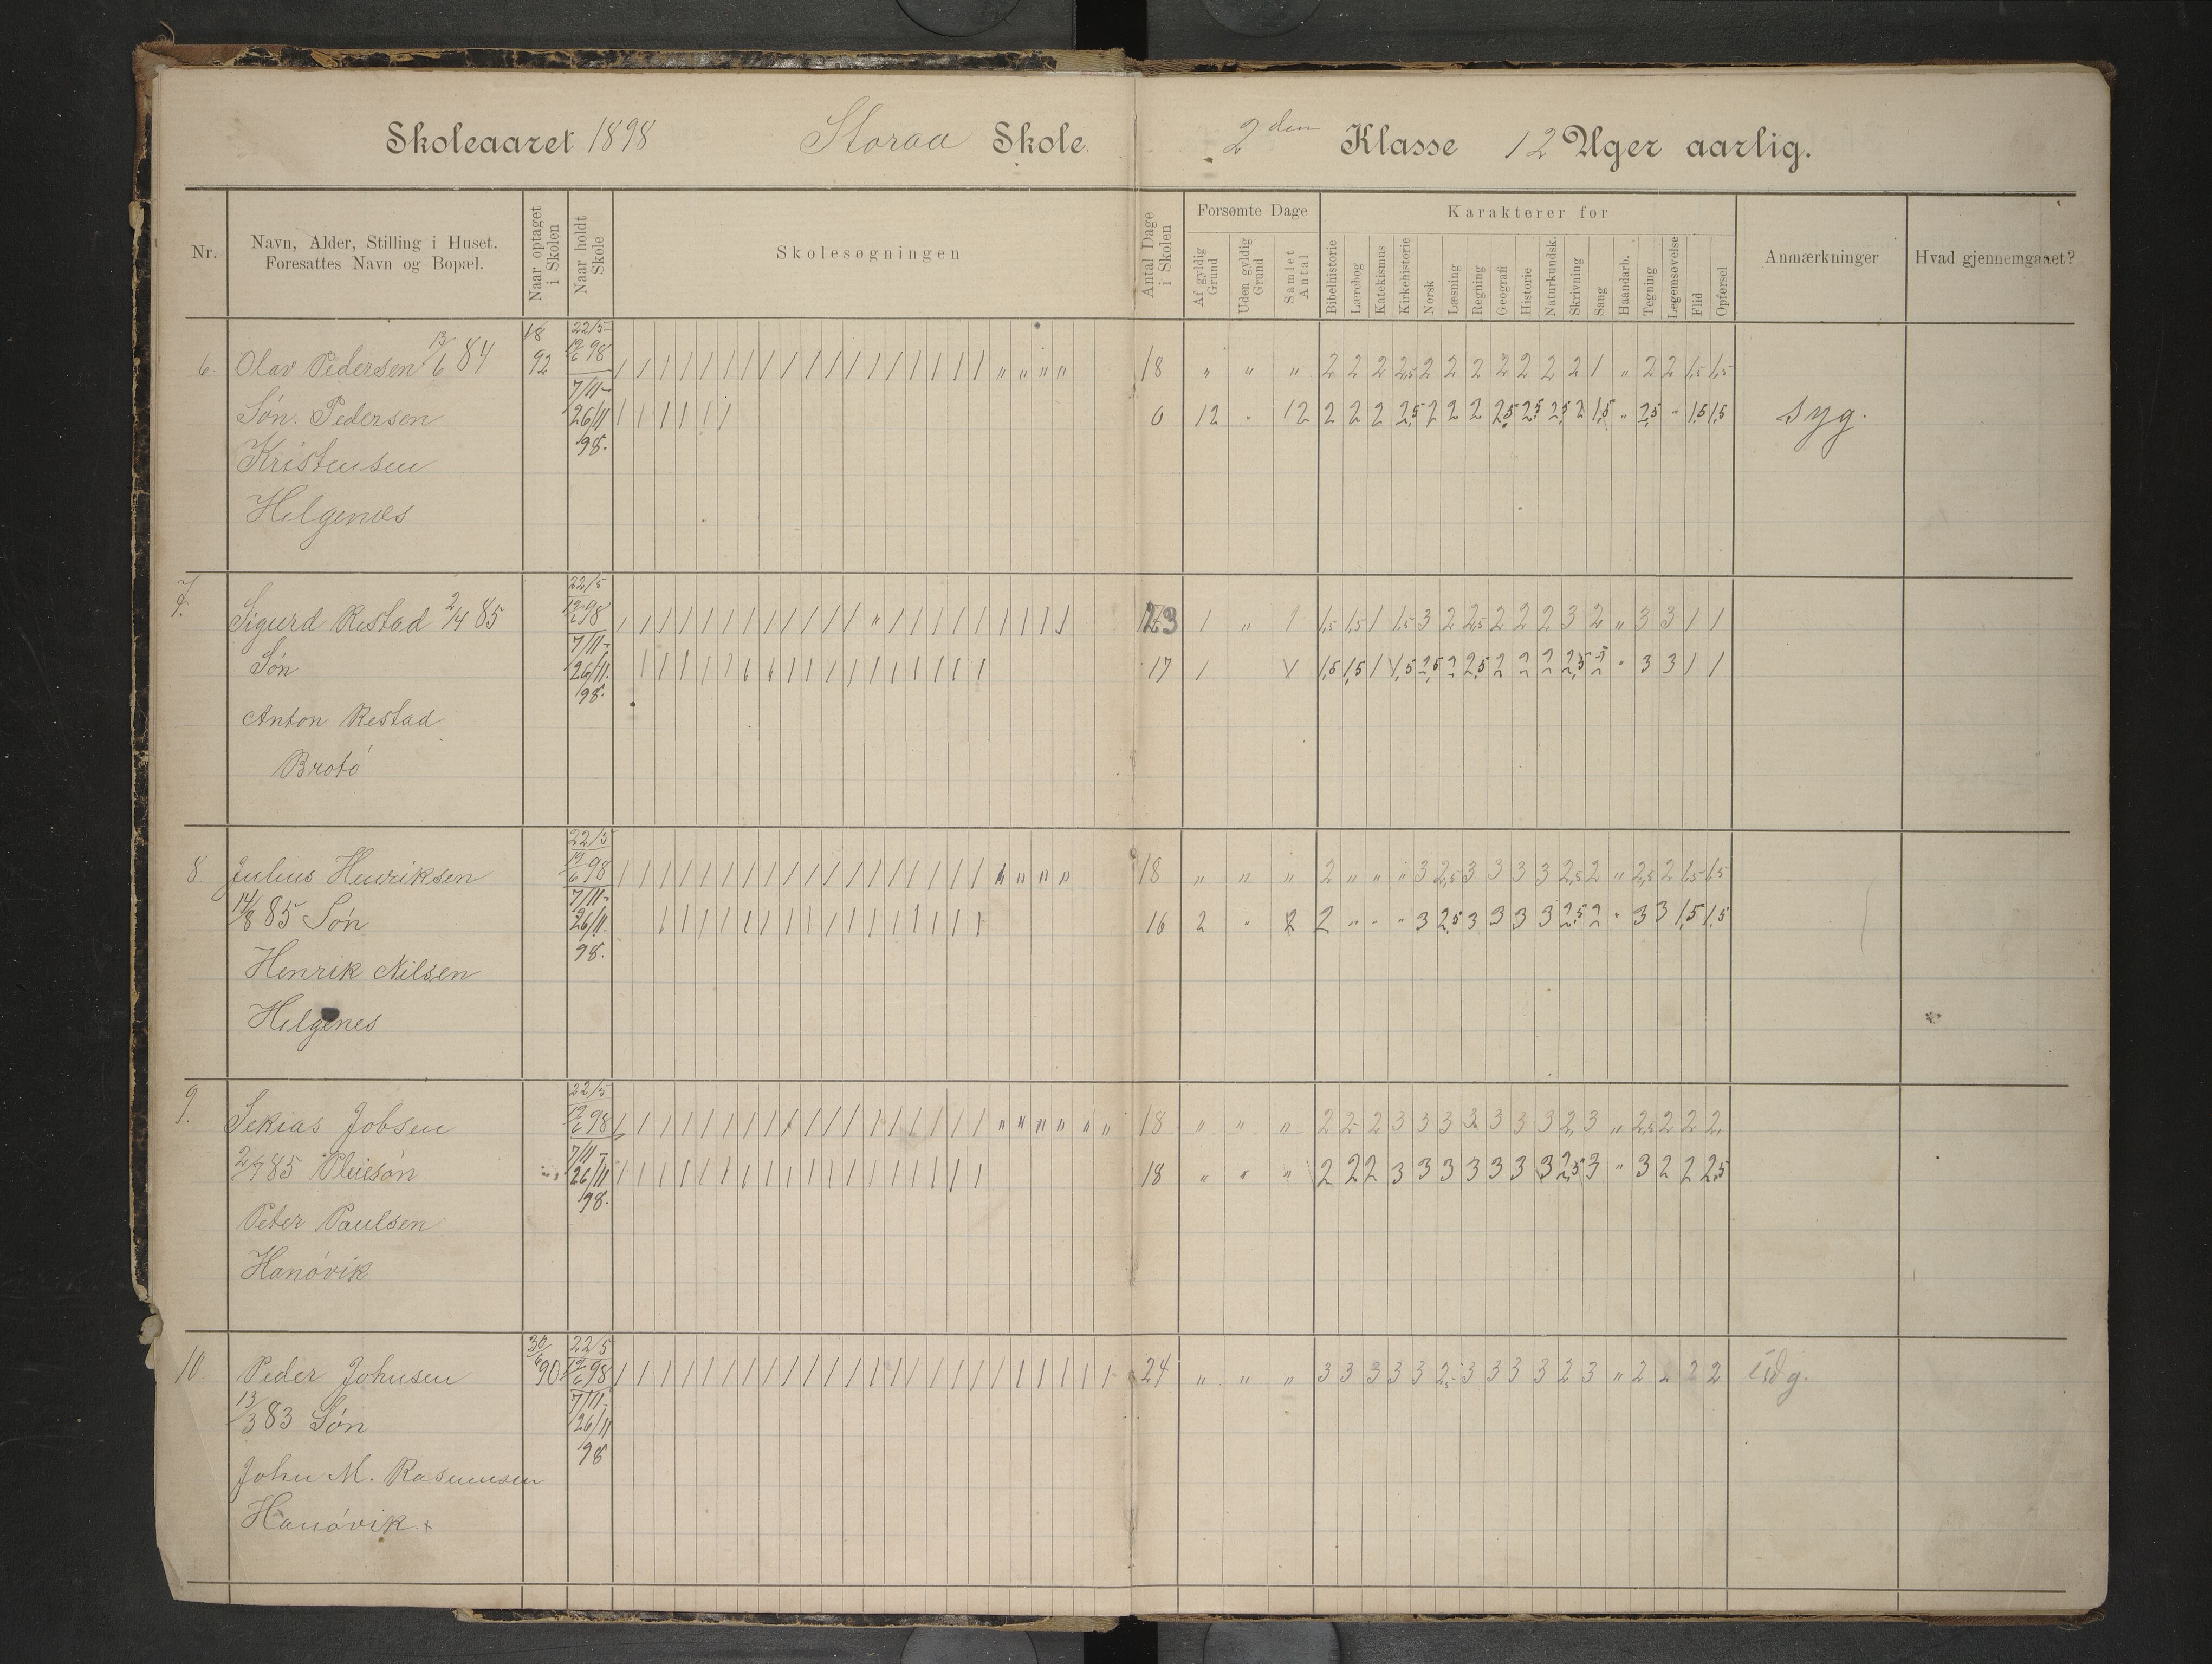 Skoleaaret 1898 Storaa Skole. 2den Klasse 12 Uger aarlig.
Nr. Navn, Alder, Stilling i Huset. Foresattes Navn og Bopæl. Naar optaget i Skolen Naar holdt Skole Skolesøgningen Antal Dage i Skolen Forsømte Dage Af gyldig Grund Uden gyldig Grund Samlet Antal Karakterer for Bibelhistorie Lærebog Katekismus Kirkehistorie Norsk Læsning Regning Geografi Historie Naturkundsk. Skrivning Sang Haandarb. Tegning Legemsøvelse Flid Opførsel Anmærkninger Hvad gjennemgaaet?
6. Olav Pedersen 13/6 84 18/92 22/5 19/6 98 / / / / / / / / / / / / / / / / / / " " " " 18 " " " 2 2 2 2,5 2 2 2 2 2 2 2 1 " 2 2 1,5 1,5
Søn. Pedersen 7/11- 26/11 98. / / / / / / 6 12 " 12 2 2 2 2,5 2 2 2 2,5 2,5 2,5 2 1,5 " 2,5 " 1,5 1,5 syg.
Kristensen
Helgenæs
7. Sigurd Restad 2/4 85 22/5 19/6 98 / / / / / / / / / / / / " / / / / / / / / / 23 1 " 1 1,5 1,5 1 1,5 3 2 2,5 2 2 2 3 2 " 3 3 1 1
Søn 7/11- 26/11. 98. / / / / / / / / / / / / / / / / / 17 1 1 1,5 1,5 1 1,5 2,5 2 2,5 2 2 2 2,5 2 " 3 3 1 1
Anton Restad
Brotø
8 Julius Henriksen 22/5 19/6 98 / / / / / / / / / / / / / / / / / / " " " " 18 " " " 2 " " " 3 2,5 3 3 3 3 2,5 2 " 2,5 2 1,5 1,5
14/8 85 Søn 7/11- 26/11. 98. / / / / / / / / / / / / / / / / 16 2 " 2 2 " " " 3 2,5 3 3 3 3 2,5 2 " 3 3 1,5 1,5
Henrik Nilsen
Helgenes
9. Sekias Jobsen 22/5 19/6 98 / / / / / / / / / / / / / / / / / / " " " " " " 18 " " " 2 2 2 3 3 3 3 3 3 3 2 3 " 2,5 2 2 2
2/7 85 Pleiesøn 7/11- 26/11 98. / / / / / / / / / / / / / / / / / / 18 " " " 2 2 2 3 3 3 3 3 3 3 2,5 3 " 3 2 2 2,5
Peter Paulsen
Hanøvik
10 Peder Johnsen 30/6 90 22/5 19/6 98 / / / / / / / / / / / / / / / / / / / / / / / / 24 " " " 3 3 3 3 3 2,5 3 3 3 3 2 3 " 2 2 2 2 Udg.
13/3 83 Søn 7/11- 26/11 98
John M. Rasmusen
Hanøvik